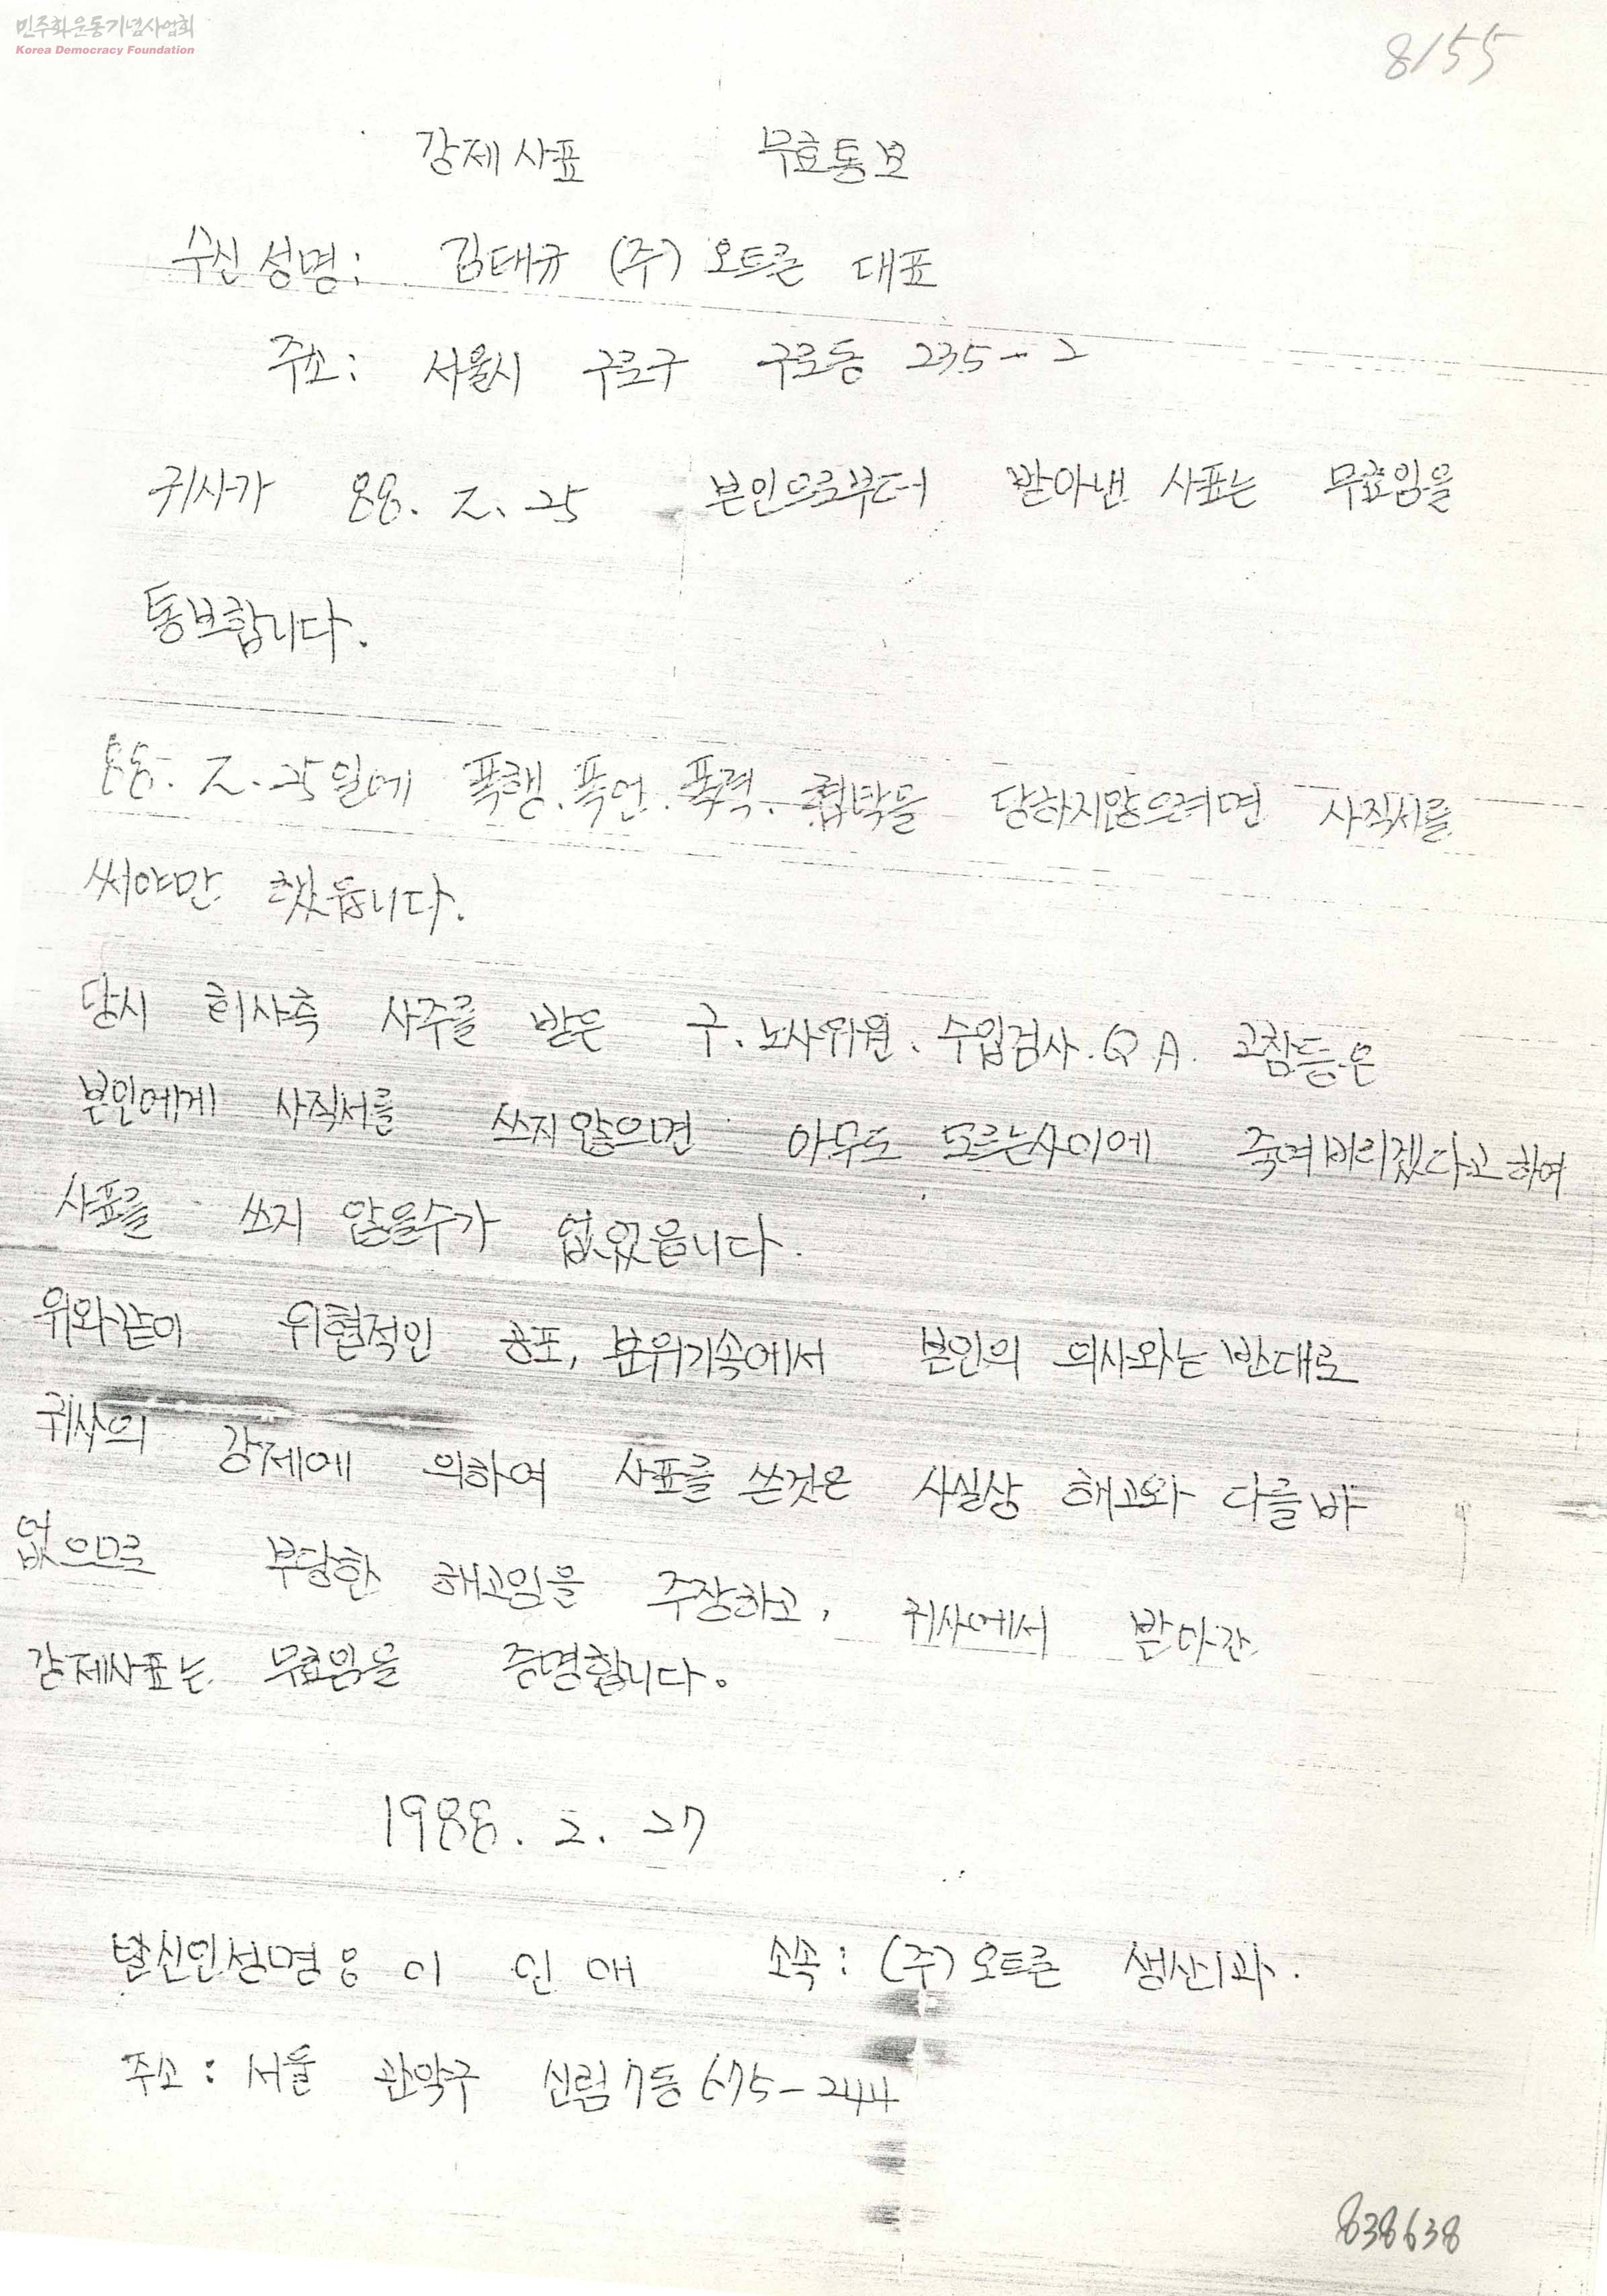 민주화운동기념사업회
Korea Democracy Foundation
8155
강제사표 무효통보
수신 성명: 김태규 (주) 오트론 대표
주소: 서울시 구로구 구로동 235-2
귀사가 88. 2. 25 본인으로부터 받아낸 사표는 무효임을
통보합니다.
88. 2. 25일에 폭행. 폭언. 폭력. 협박을 당하지않으려면 사직서를
써야만 했읍니다.
당시 회사측 사주를 받은 구. 노사위원. 수입검사. Q A. 고참등은
본인에게 사직서를 쓰지않으면 아무도 모르는사이에 죽여버리겠다고하여
사표를 쓰지 않을수가 없었읍니다.
위와같이 위협적인 공포, 분위기속에서 본인의 의사와는 반대로
귀사의 강제에 의하여 사표를 쓴것은 사실상 해고와 다를바
없으므로 부당한 해고임을 주장하고, 귀사에서 받아간
강제사표는 무효임을 증명합니다.
1988. 2. 27
발신인성명: 이 인 애 소속: (주) 오트론 생산1과.
주소: 서울 관악구 신림7동 675-244
838638